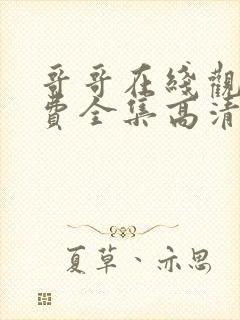 哥哥在綫觀
費全集高清
夏草、亦思